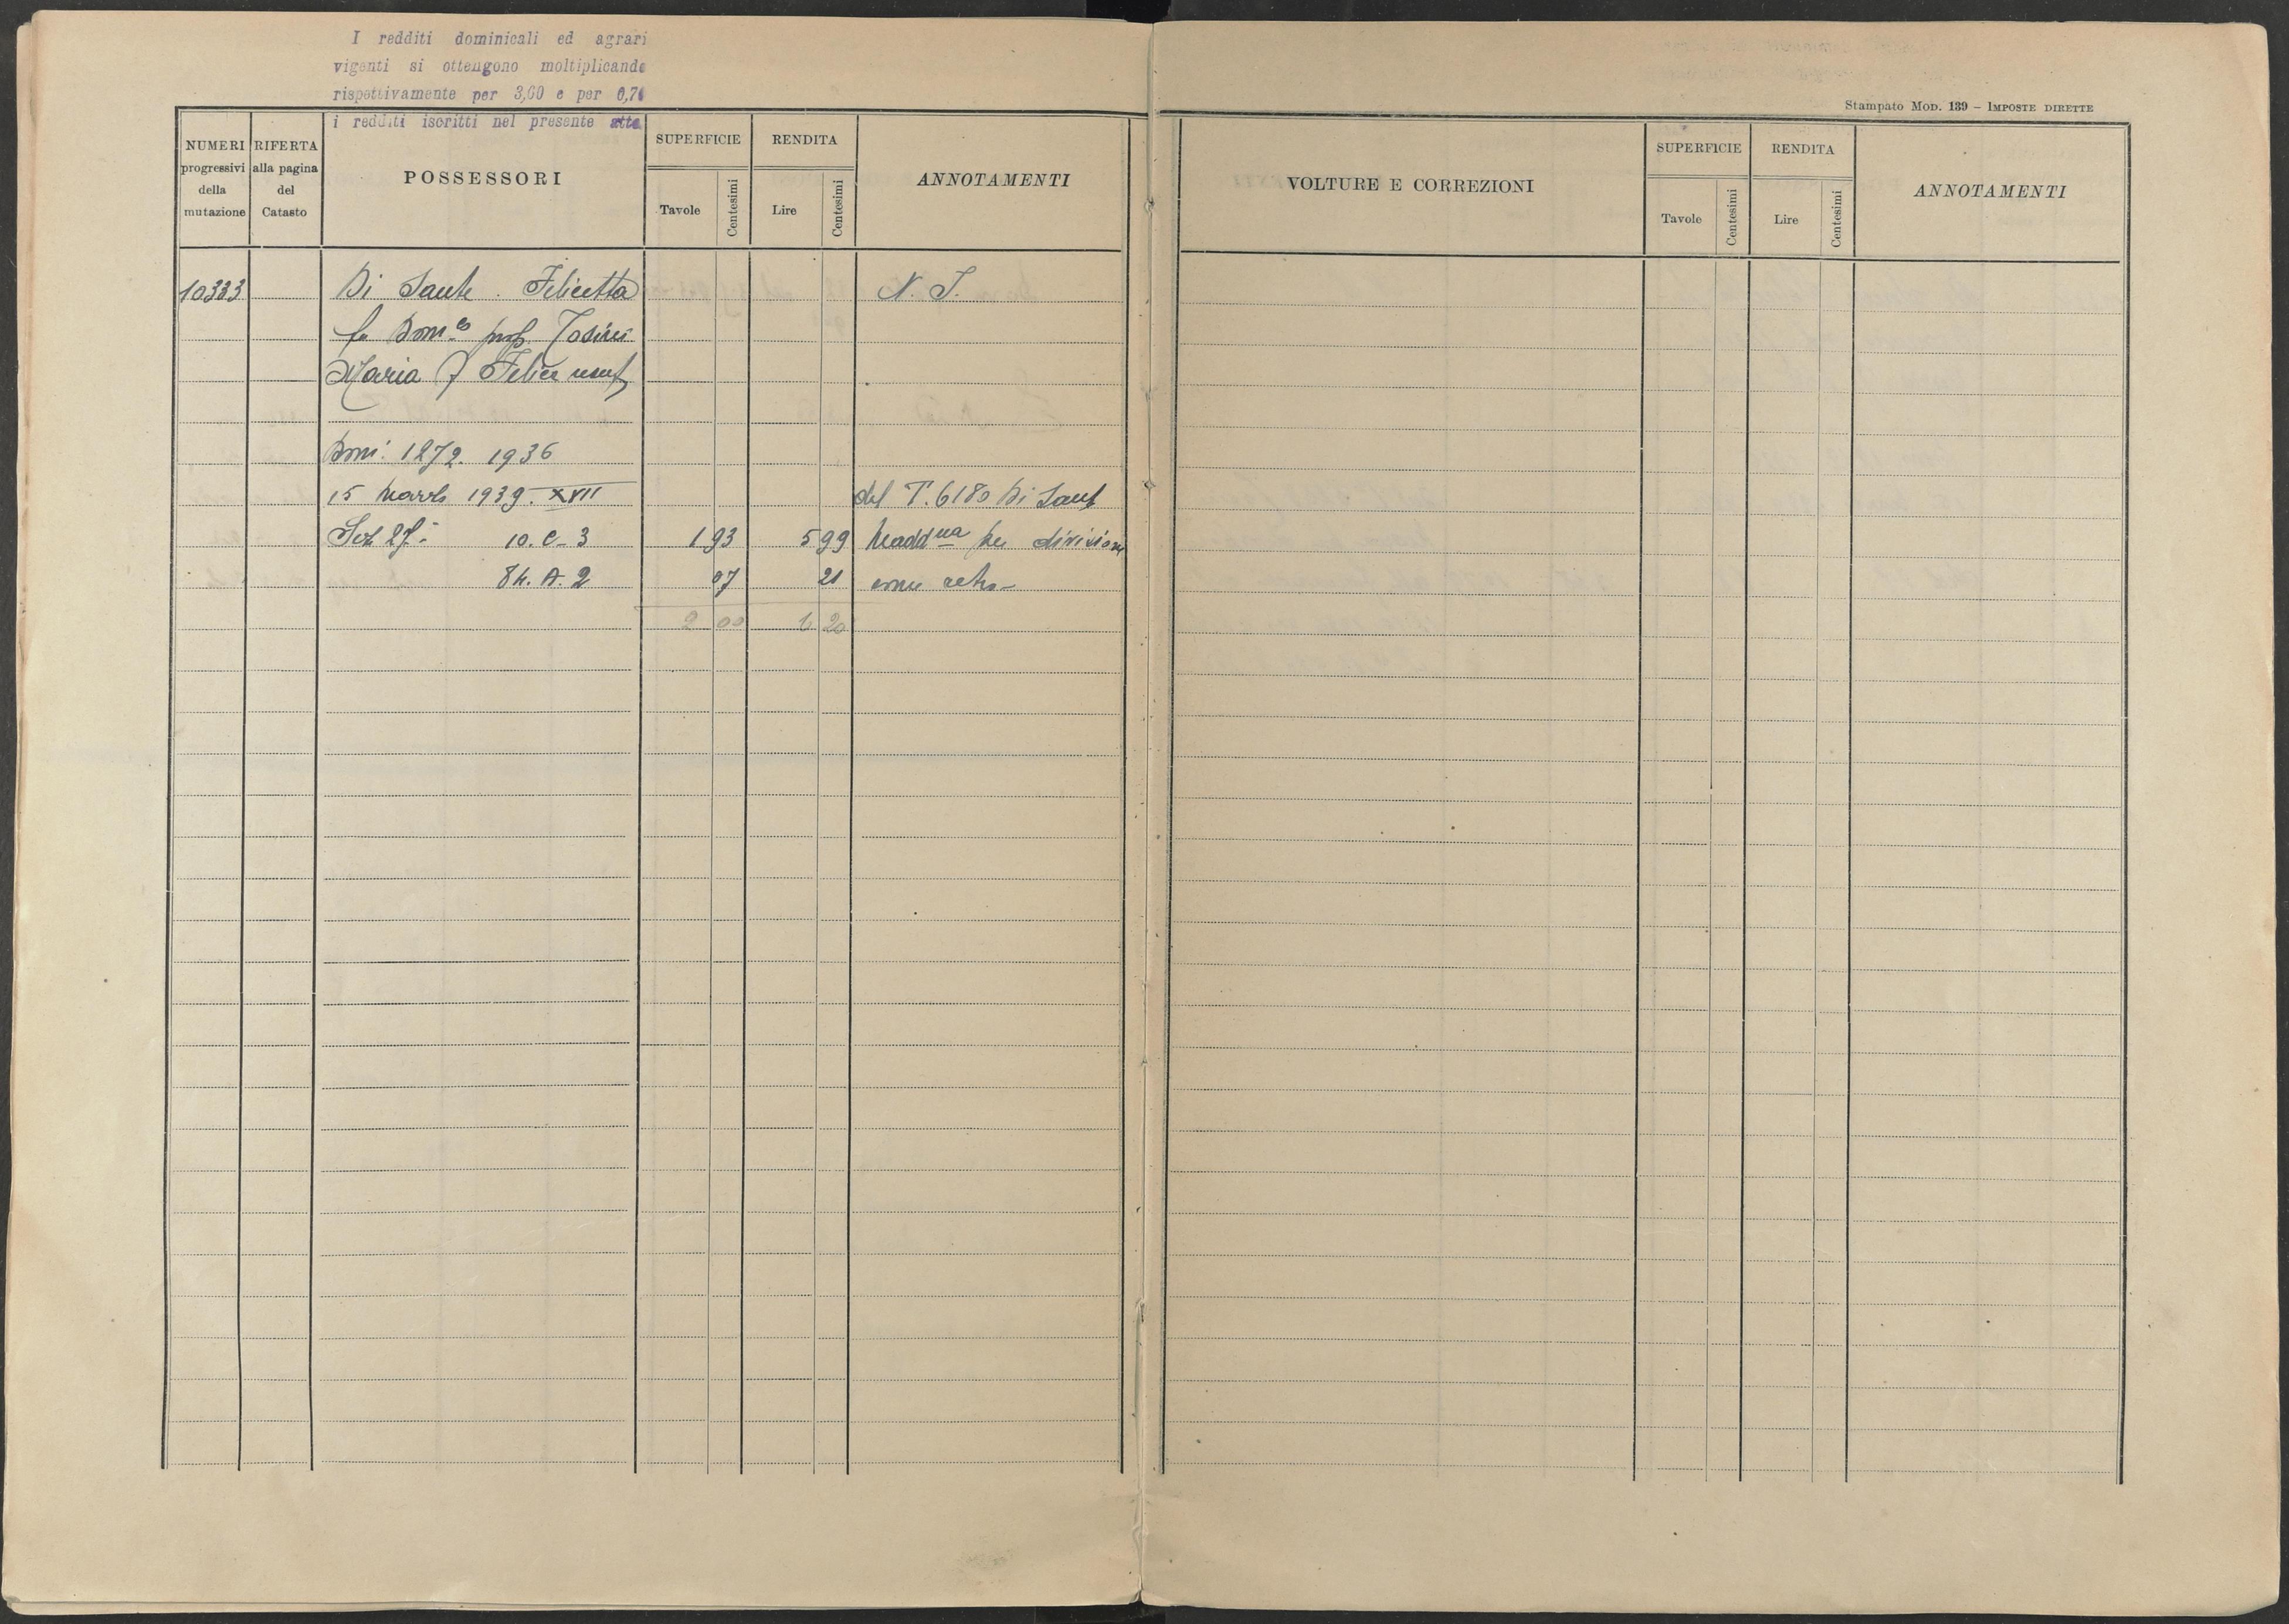 I redditi dominicali ed agrari
vigenti si ottengono moltiplicando
rispettivamente per 3,60 e per 0,70
i redditi iscritti nel presente atto
Stampato Mod. 139 – Imposte dirette
NUMERI progressivi della mutazione
RIFERTA alla pagina del Catasto
POSSESSORI
SUPERFICIE
Tavole Centesimi
RENDITA
Lire Centesimi
ANNOTAMENTI
10333 Di Sante Felicetta N. I.
fu Dom.co prop.
Maria fu Felice
Dom: 1272. 1936
15 Marzo 1939. XVII del T. 6180 Di Sante
10. C. 3 1 93 5 99 per divisione
84. A. 2 07 21 come retro
2 00 6 20
VOLTURE E CORREZIONI
SUPERFICIE
Tavole Centesimi
RENDITA
Lire Centesimi
ANNOTAMENTI